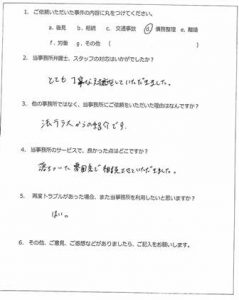 1. ご依頼いただいた事件の内容に丸をつけてください。
a. 後見 b. 相続 c. 交通事故 d. 債務整理 e. 離婚
f. 労働 g. その他 ( )
2. 当事務所弁護士、スタッフの対応はいかがでしたか?
とても丁寧な対応をしていただきました。
3. 他の事務所ではなく、当事務所にご依頼をいただいた理由はなんですか?
法テラスからの紹介です。
4. 当事務所のサービスで、良かった点はどこですか?
落ちついた雰囲気で相談させていただきました。
5. 再度トラブルがあった場合、また当事務所を利用したいと思いますか?
はい。
6. その他、ご意見、ご感想などがありましたら、ご記入をお願いします。